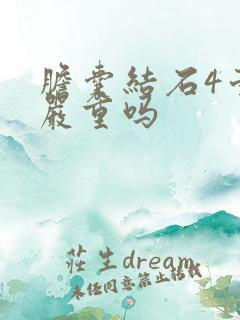 膽囊結石4
嚴重吗
莊生dream
未经同意禁止转载